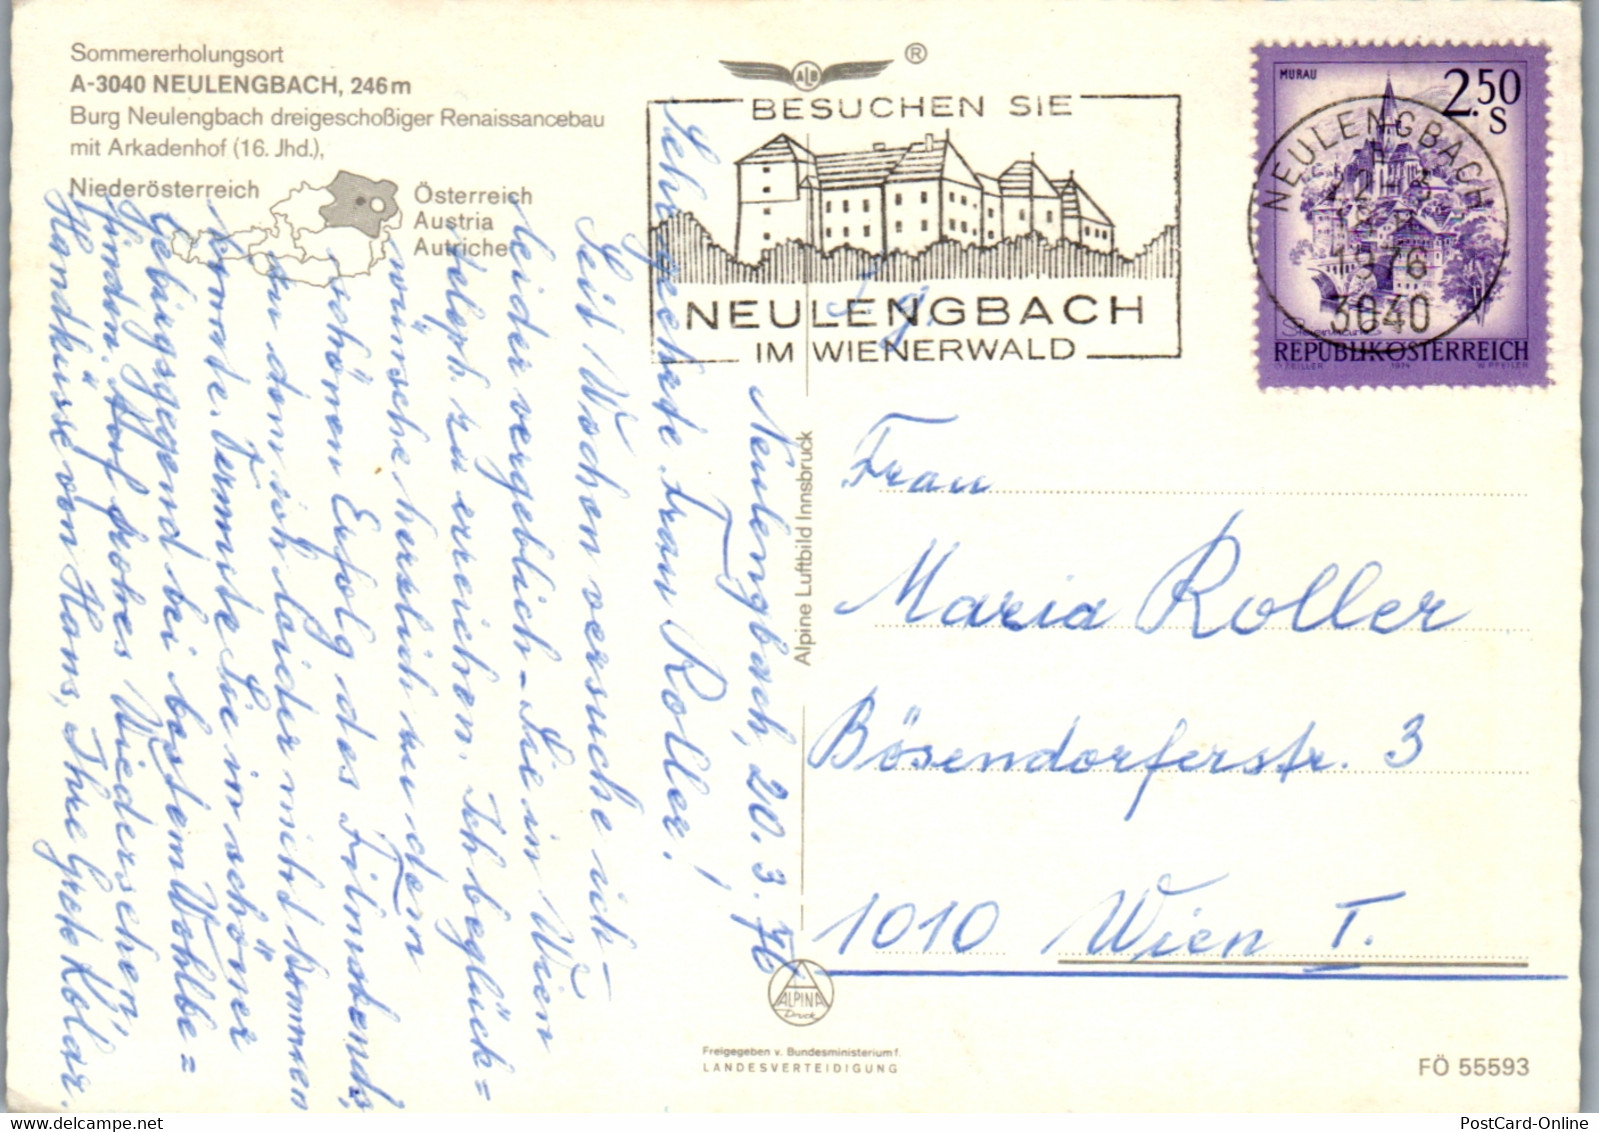 Sommererholungsort
A-3040 NEULENGBACH, 246 m
Burg Neulengbach dreigeschoßiger Renaissancebau
mit Arkadenhof (16. Jhd.),
Niederösterreich
Österreich
Austria
Autriche
ALB ®
BESUCHEN SIE
NEULENGBACH
IM WIENERWALD
MURAU
2.50
S
REPUBLIK ÖSTERREICH
1974
NEULENGBACH
1976
3040
Neulengbach, 20. 3. 76
Sehr geehrte Frau Roller!
Seit Wochen versuche ich -
leider vergeblich - Sie in Wien
teleph. zu erreichen. Ich beglück=
wünsche herzlich zu dem
schönen Erfolg des Filmabends,
zu dem ich leider nicht kommen
konnte. Vermute Sie in schöner
Gebirgsgegend bei bestem Wohlbe=
finden. Auf frohes Wiedersehen,
Handküsse von Hans, Ihre Grete Kolar.
Frau
Maria Roller
Bösendorferstr. 3
1010 Wien I.
Alpine Luftbild Innsbruck
ALPINA
Druck
Freigegeben v. Bundesministerium f.
LANDESVERTEIDIGUNG
FÖ 55593
PostCard-Online